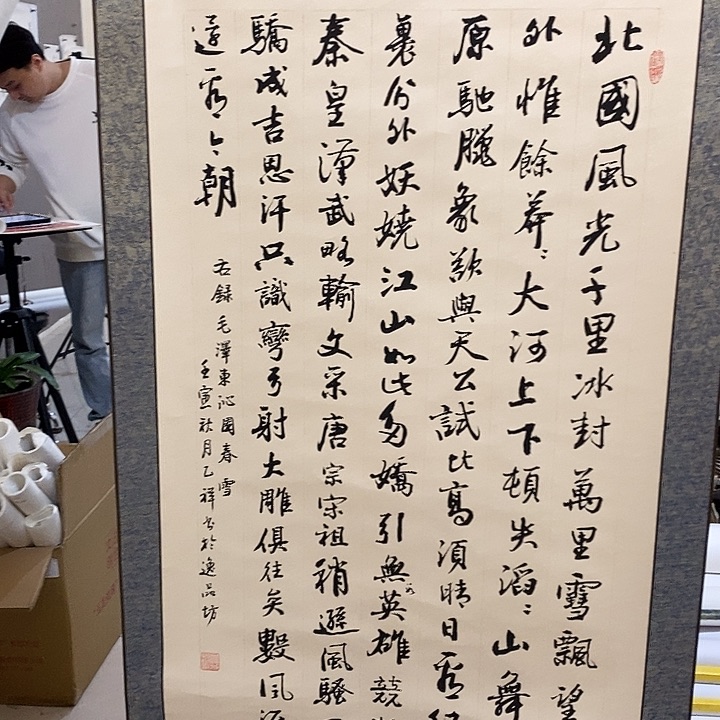 北國風光千里冰封萬里雪飄望
外惟餘莽〻大河上下頓失滔〻山舞
原馳臘象欲與天公試比高須晴日看紅
裹份外妖嬈江山如此多嬌引無英雄競
秦皇漢武略輸文采唐宗宋祖稍遜風騷
驕成吉思汗只識彎弓射大雕俱往矣數風流
還看今朝
右録毛澤東沁園春雪
壬寅秋月乙祥書於逸品坊